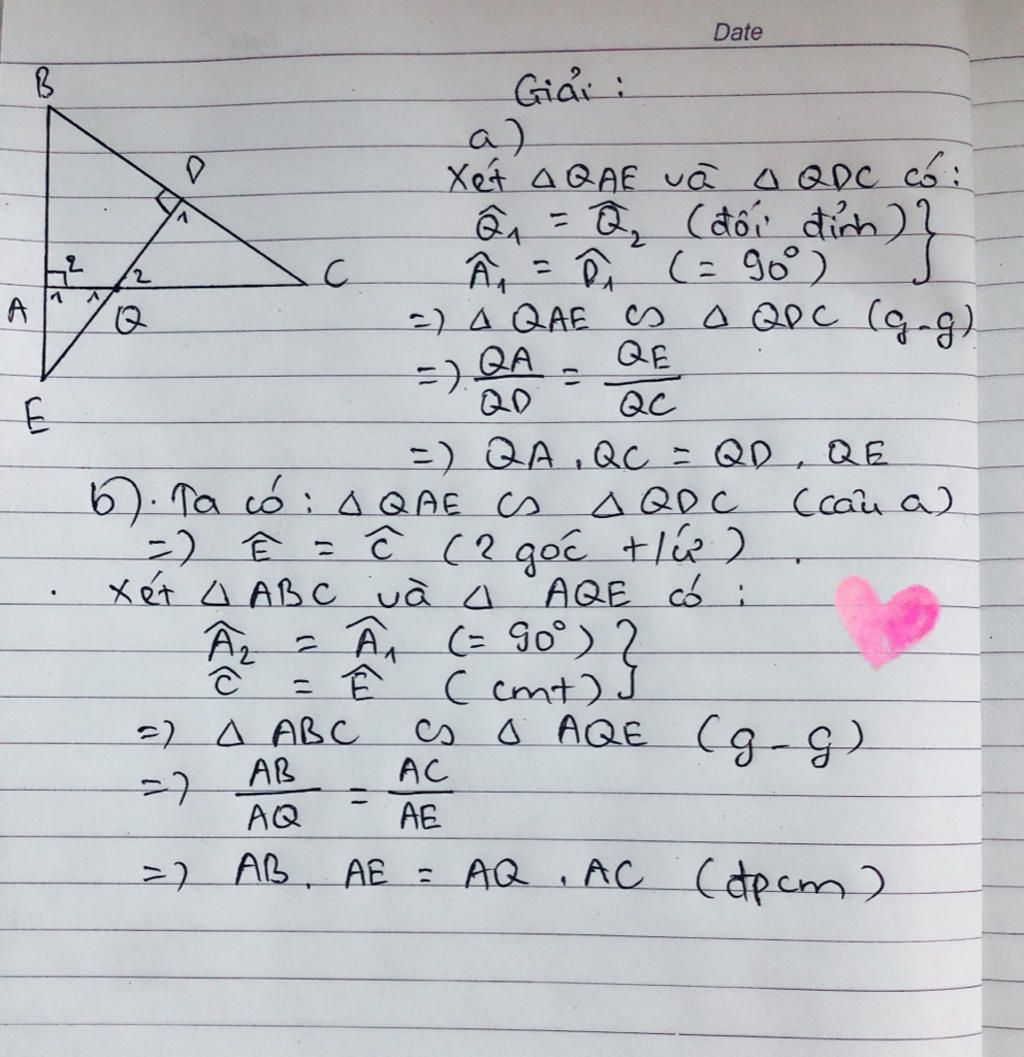 Date
Giải :
a)
Xét △QAE và △ QDC có :
Q̂₁ = Q̂₂ (đối đỉnh) }
Â₁ = D̂₁ (= 90°)
=> △ QAE ∽ △ QDC (g-g)
=> QA/QD = QE/QC
=> QA . QC = QD . QE
b). Ta có : △QAE ∽ △QDC (câu a)
=> Ê = Ĉ (2 góc t/ứ) .
. Xét △ABC và △ AQE có :
Â₂ = Â₁ (= 90°) }
Ĉ = Ê (cmt)
=> △ ABC ∽ △ AQE (g-g)
=> AB/AQ = AC/AE
=> AB . AE = AQ . AC (đpcm)
B
D
1
2
2
C
A
1
1
Q
E